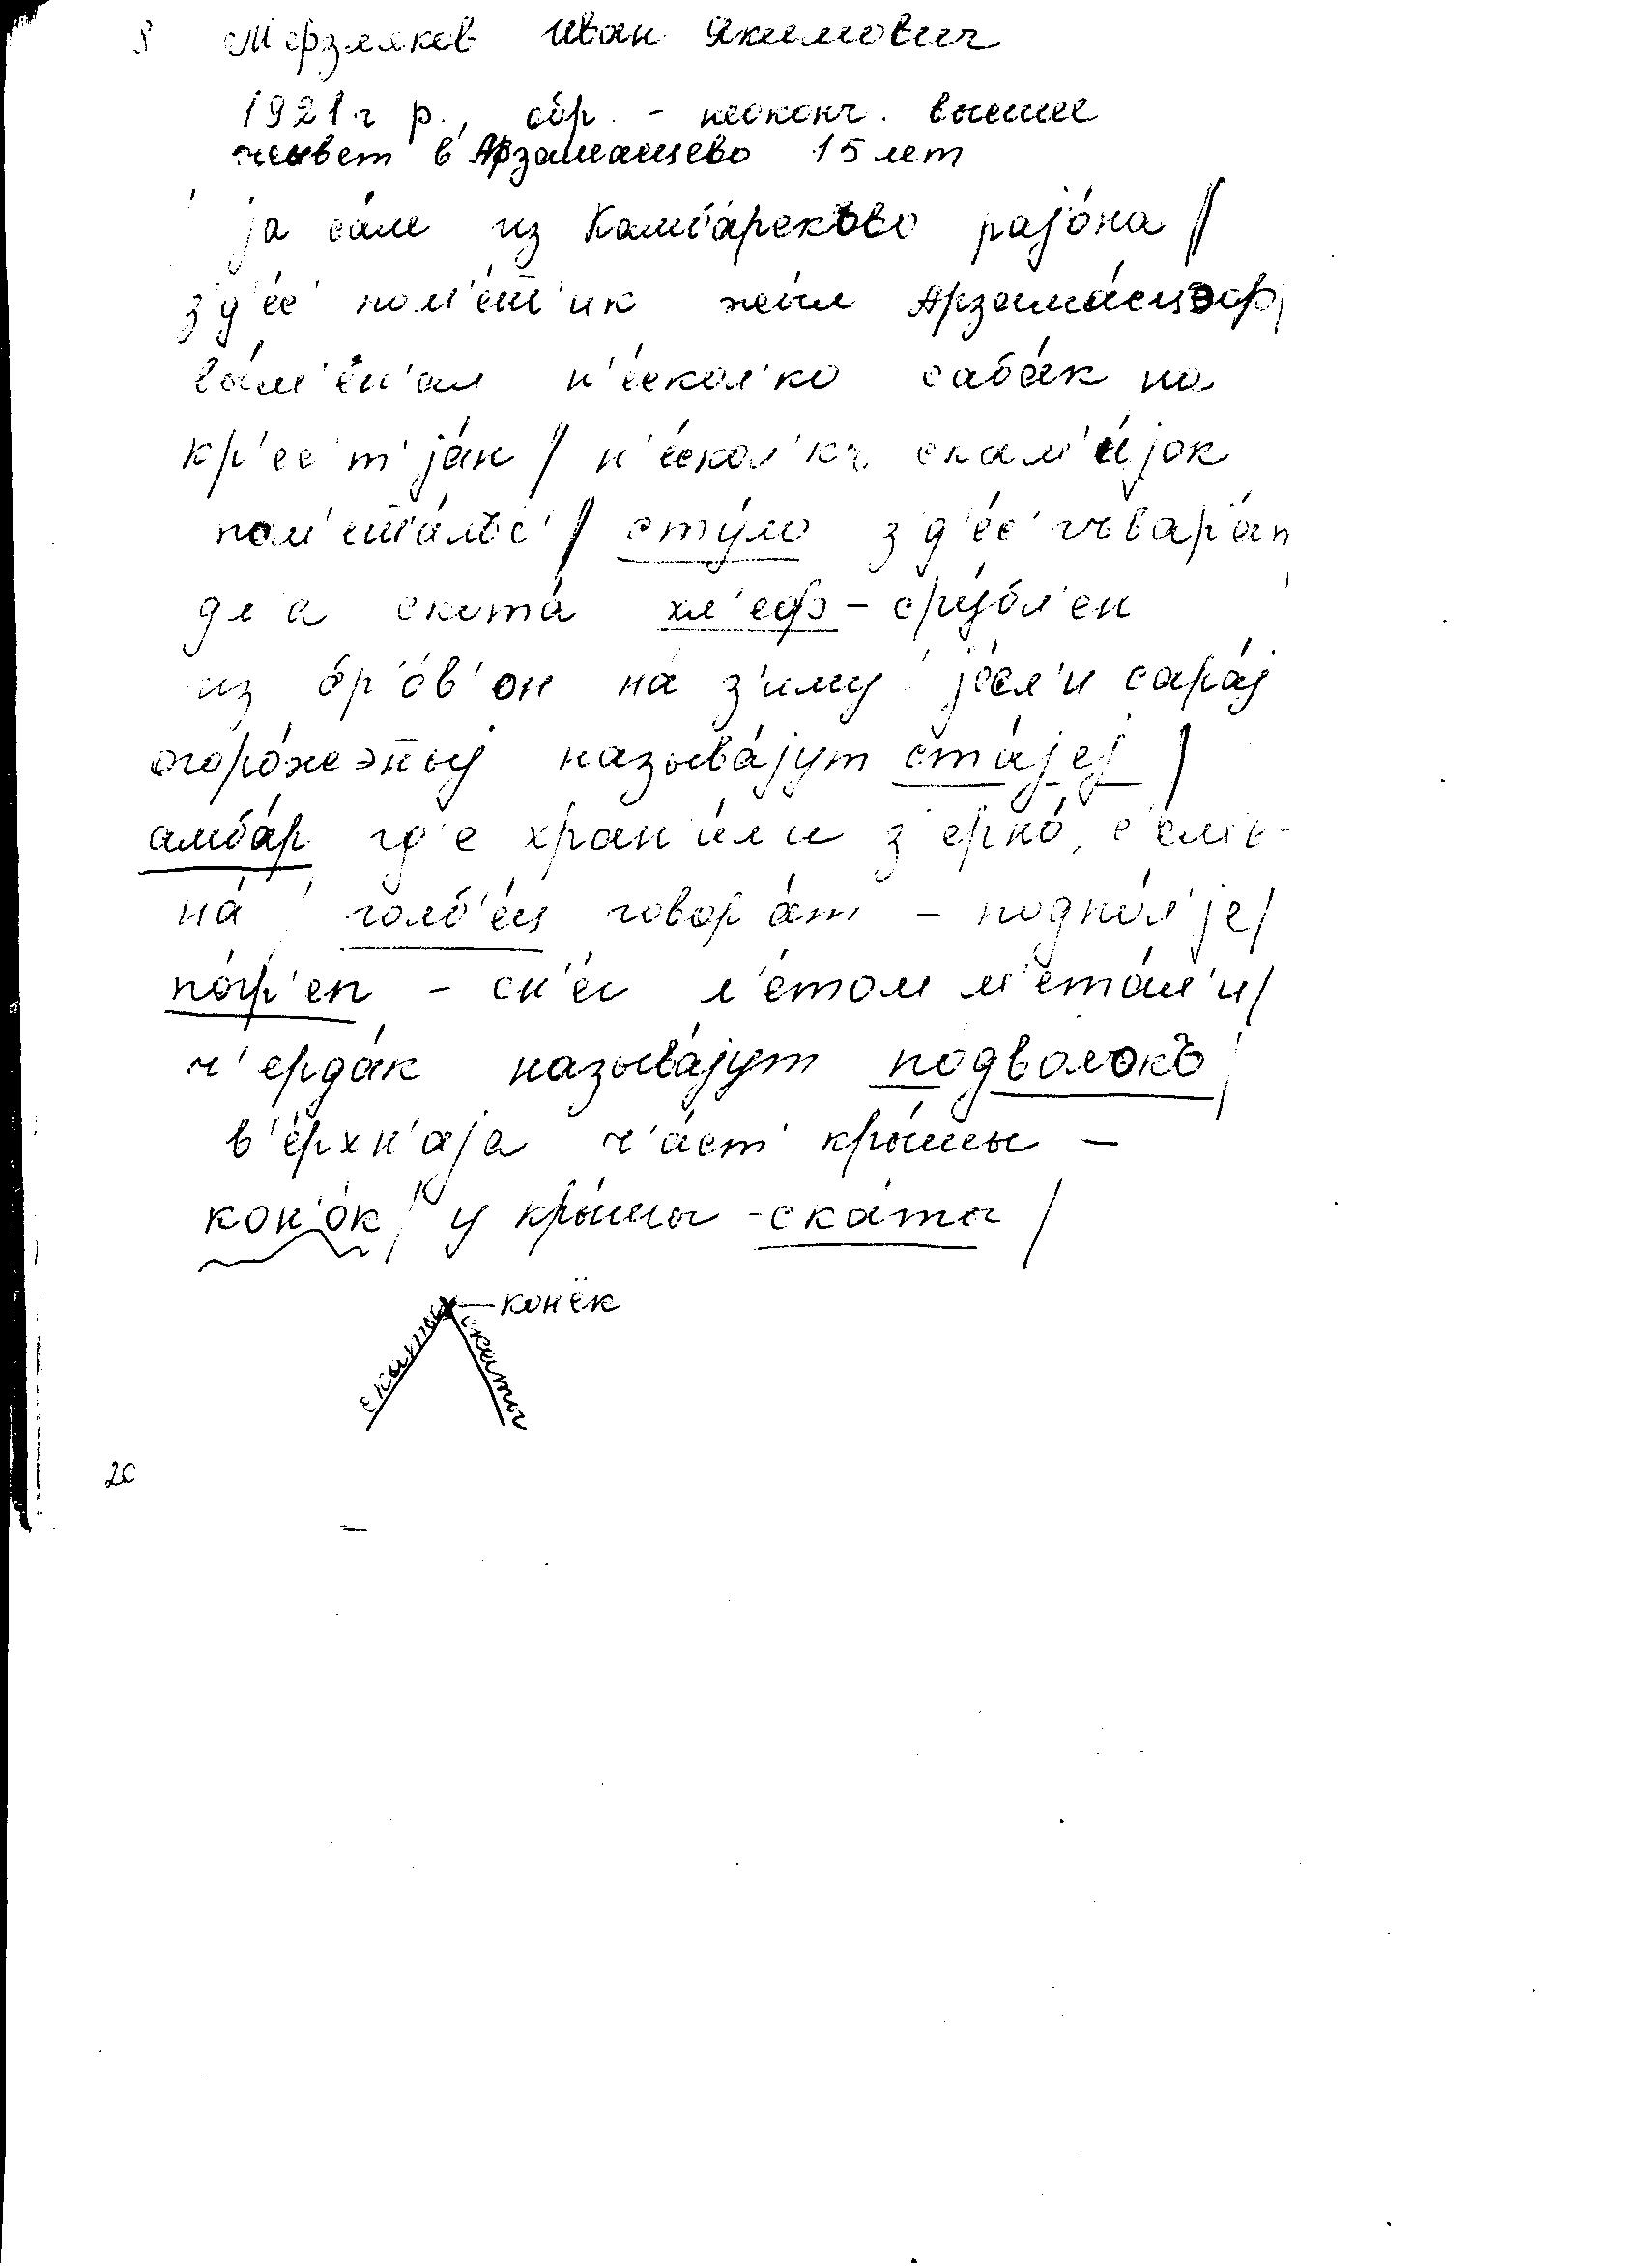 8 Мерзляков Иван Якимович
1921 г р., обр. - неоконч. высшее
живет в Арзамасцево 15 лет
ја са́м из Камба́рекъво рајо́на //
з'д'е́с' пом'е́ш̄'ик жы́л Арзама́сцэф/
вы́м'ен'ал н'е́скол'ко саба́к на
кр'ес'т'ја́н // н'е́скол'къ скам'и́јок
пом'еш̄а́лъс' // сту́ло з'д'е́с' гъвар'а́т
дл'а скота́ хл'еф - сру́бл'ен
из бр'о́в'он на́ з'иму је́сл'и сара́ј
огоро́жэн̄ыј называ́јут ста́јеј /
амба́р гд'е хран'и́ли з'ерно́, с'ем'е-
на́ / голб'е́ц говор'а́т - подпо́л'је /
по́гр'еп - сн'е́г л'е́том м'ета́л'и /
ч'ерда́к называ́јут подволокъ /
в'е́рхн'аја ч'а́ст' кры́шы -
кон'о́к / у кры́шы - ска́ты /
конёк
скаты скаты
20